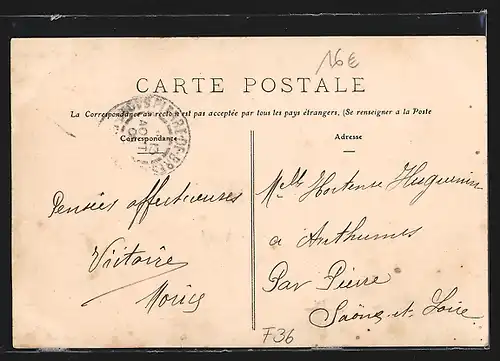 16E
CARTE POSTALE
La Correspondance au recto n'est pas acceptée par tous les pays étrangers, (Se renseigner à la Poste
Correspondance
Adresse
Pensées affectueuses
Victoire
Melle Hortense Huguenin
à Authumes
Par Pierre
Saône et Loire
F36